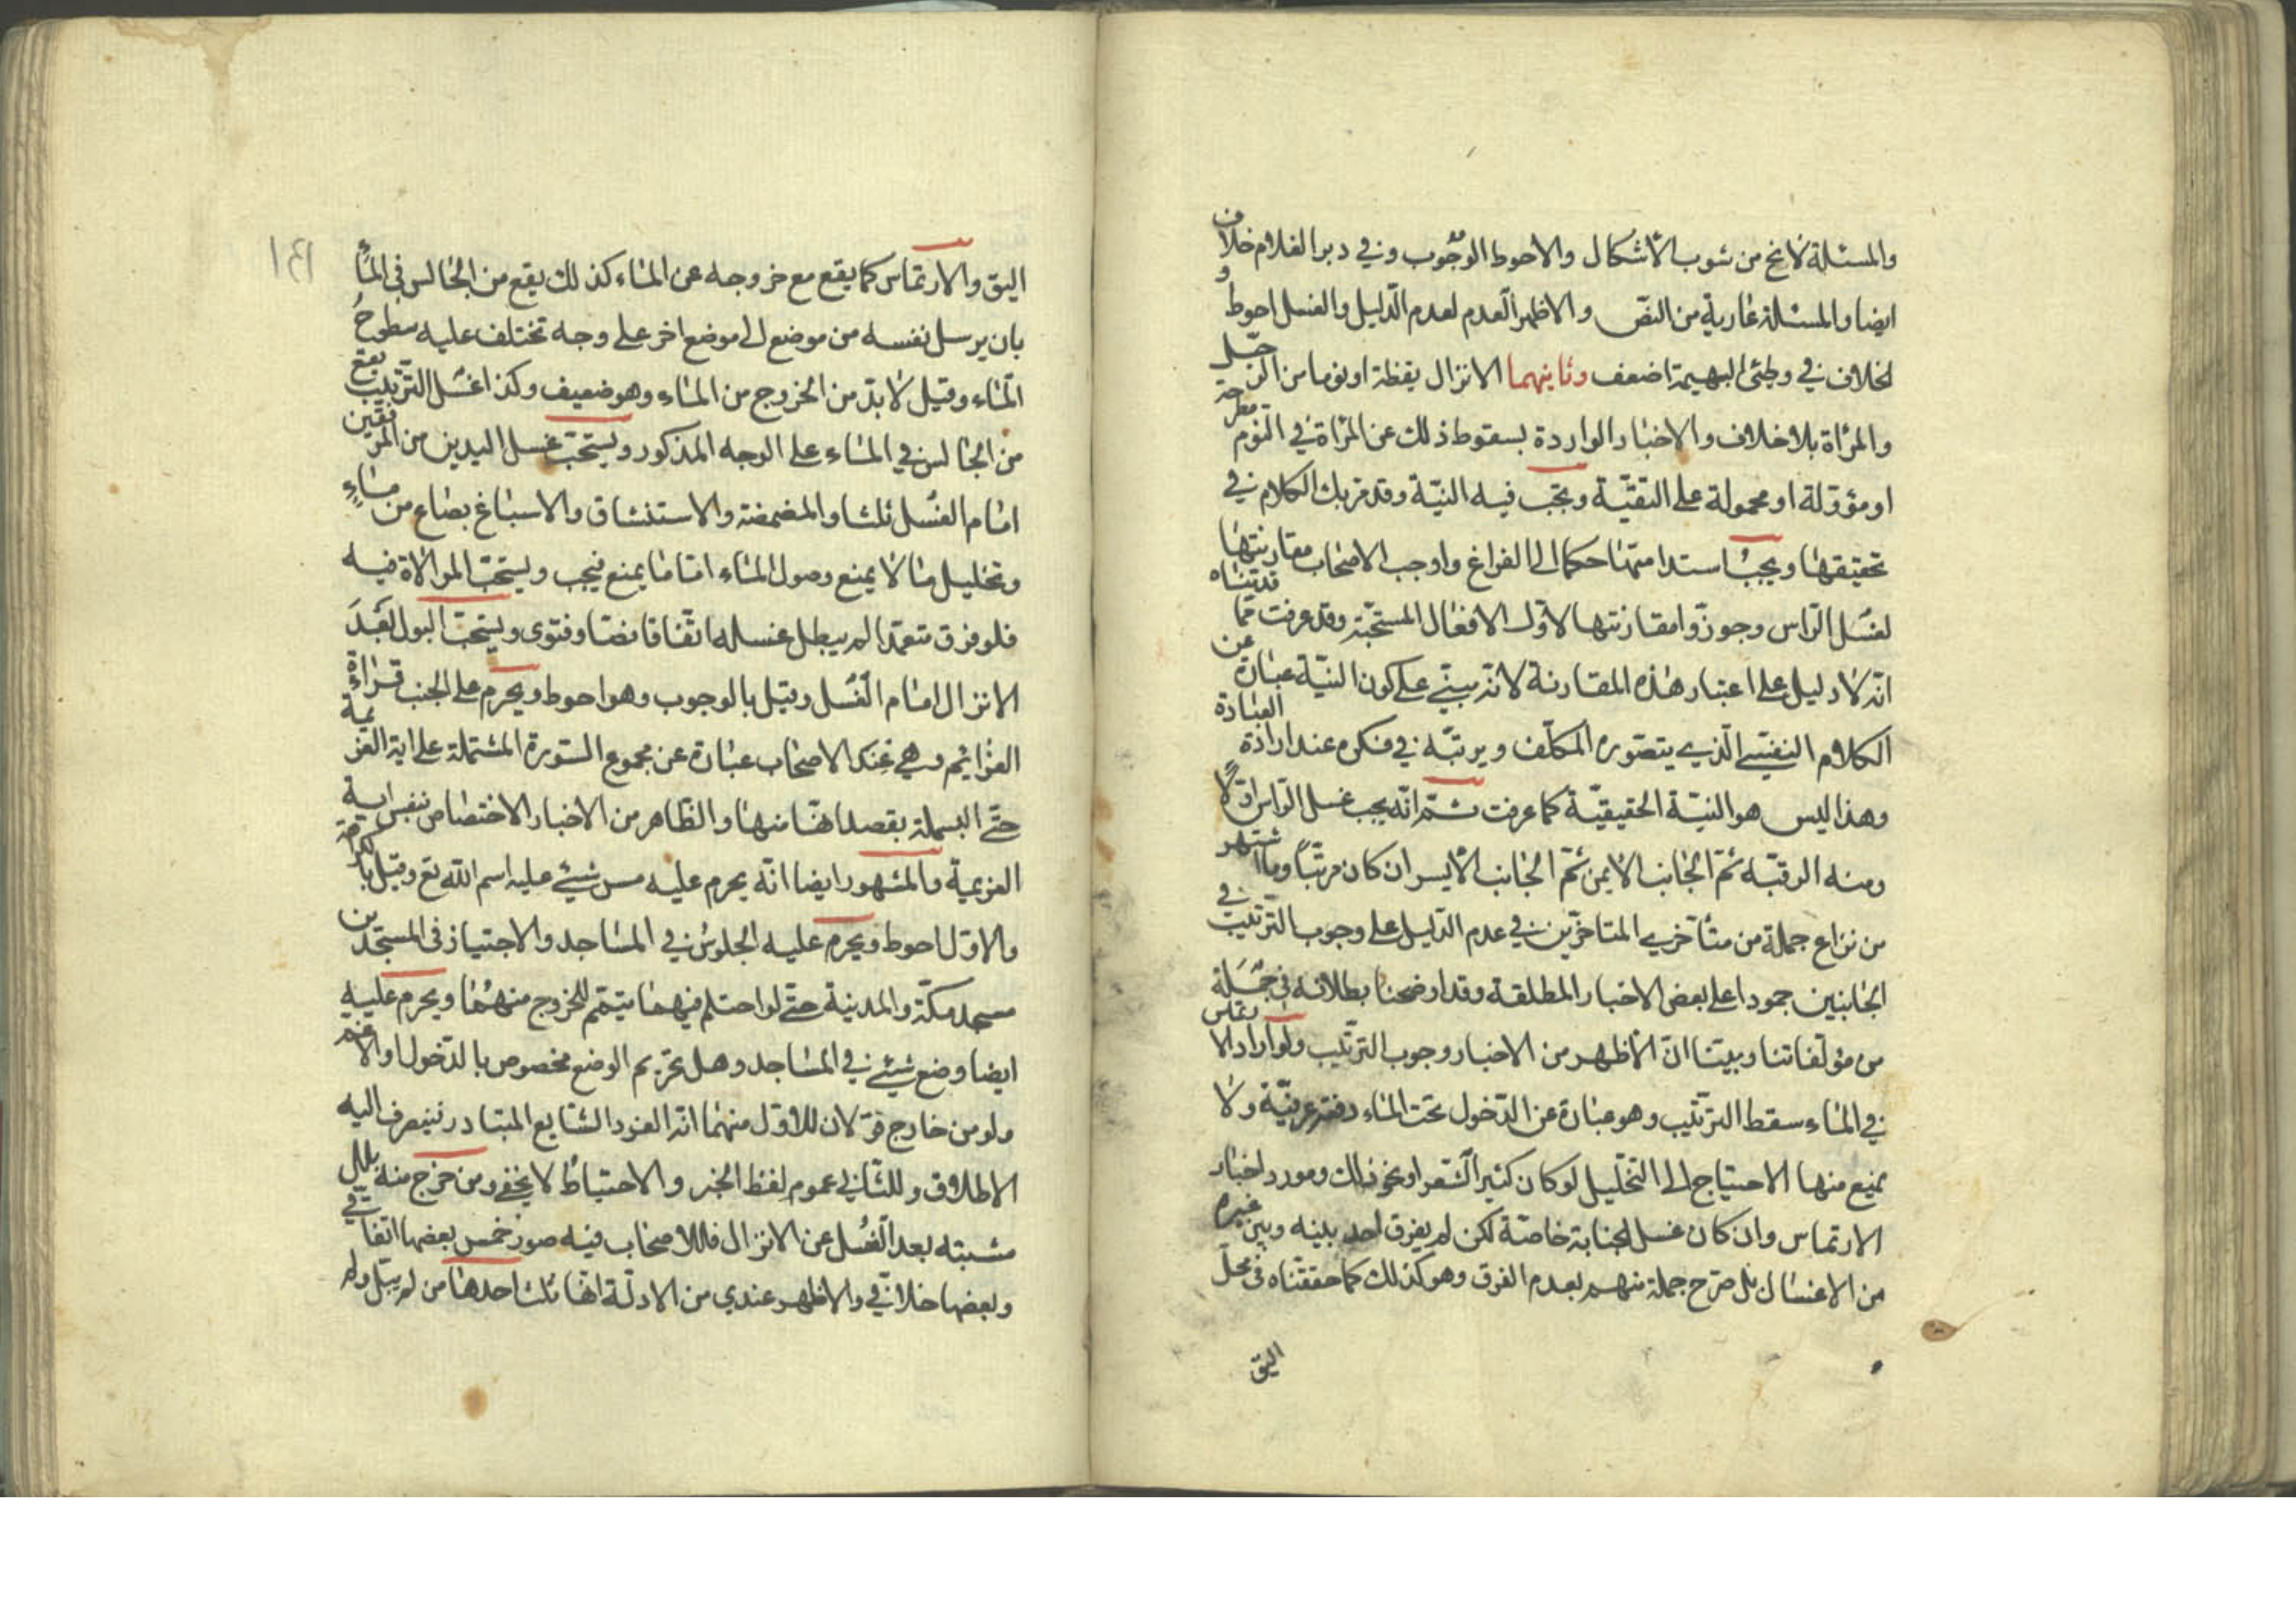 والمسئلة لا تخ من شوب الاشكال والاحوط الوجوب وفي دبر الغلام خلاف
ايضا والمسئلة عارية من النص والاظهر العدم لعدم الدليل والغسل احوط و
الخلاف في وطئ البهيمة اضعف وثانيهما الانزال يقظة او نوما من الرجل
والمرأة بلا خلاف والاخبار الواردة بسقوط ذلك عن المرأة في النوم مطرحة
او مؤولة او محمولة على التقيّة ويجب فيه النيّة وقد مر بك الكلام في
تحقيقها ويجب استدامتها حكما الى الفراغ واوجب الاصحاب مقارنتها
لغسل الرأس وجوزوا مقارنتها لاول الافعال المستحبّة وقد عرفت مما قدمناه
انه لا دليل على اعتبار هذه المقارنة لانه مبني على كون النيّة عبارة عن
الكلام النفسي الذي يتصوره المكلّف ويرتبه في فكره عند ارادة العبادة
وهذا ليس هو النيّة الحقيقيّة كما عرفت ثم انه يجب غسل الرأس اوّلا
ومنه الرقبة ثمّ الجانب الايمن ثمّ الجانب الايسر ان كان مرتّبا وما اشتهر
من نزاع جملة من متأخري المتأخرين في عدم الدليل على وجوب الترتيب في
الجانبين جمودا على بعض الاخبار المطلقة وقد اوضحنا بطلانه في جملة
من مؤلفاتنا وبيّنا انّ الاظهر من الاخبار وجوب الترتيب ولو اراد الارتماس
في الماء سقط الترتيب وهو عبارة عن الدخول تحت الماء دفعة عرفيّة ولا
يمنع منها الاحتياج الى التخليل لو كان كثير الشعر او نحو ذلك ومورد اخبار
الارتماس وان كان غسل الجنابة خاصّة لكن لم يفرق احد بينه وبين غيره
من الاغسال بل صرّح جملة منهم بعدم الفرق وهو كذلك كما حققناه في محلّ
اليق
١٤١
اليق والارتماس كما يقع مع خروجه عن الماء كذلك يقع من الجالس في الماء
بان يرسل نفسه من موضع الى موضع اخر على وجه تختلف عليه سطوح
الماء وقيل لا بدّ من الخروج من الماء وهو ضعيف وكذا غسل الترتيب يقع
من الجالس في الماء على الوجه المذكور ويستحبّ غسل اليدين من المرفقين
امام الغسل ثلثا والمضمضة والاستنشاق والاسباغ بصاع من ماء
وتخليل ما لا يمنع وصول الماء اما ما يمنع فيجب ويستحبّ الموالاة فيه
فلو فرق متعمدا لم يبطل غسله اتّفاقا نصّا وفتوى ويستحبّ البول بعد
الانزال امام الغسل وقيل بالوجوب وهو احوط ويحرم على الجنب قراءة
العزائم وهي عند الاصحاب عبارة عن مجموع السورة المشتملة على اية العزيمة
حتّى البسملة بقصد انها منها والظاهر من الاخبار الاختصاص بنفس اية
العزيمة والمشهور ايضا انّه يحرم عليه مس شيئ عليه اسم الله تع وقيل بالكراهة
والاوّل احوط ويحرم عليه الجلوس في المساجد والاجتياز في المسجدين
مسجد مكّة والمدينة حتّى لو احتلم فيهما يتيمّم للخروج منهما ويحرم عليه
ايضا وضع شيئ في المساجد وهل تحريم الوضع مخصوص بالدخول او الاعم
ولو من خارج قولان للاول منهما انّه الفرد الشايع المتبادر فينصرف اليه
الاطلاق وللثاني عموم لفظ الخبر والاحتياط لا يخفى ومن خرج منه بلل
مشتبه بعد الغسل عن الانزال فللاصحاب فيه صور خمس بعضها اتفاقي
وبعضها خلافي والاظهر عندي من الادلّة انها ثلث احدها من لم يبل ولم